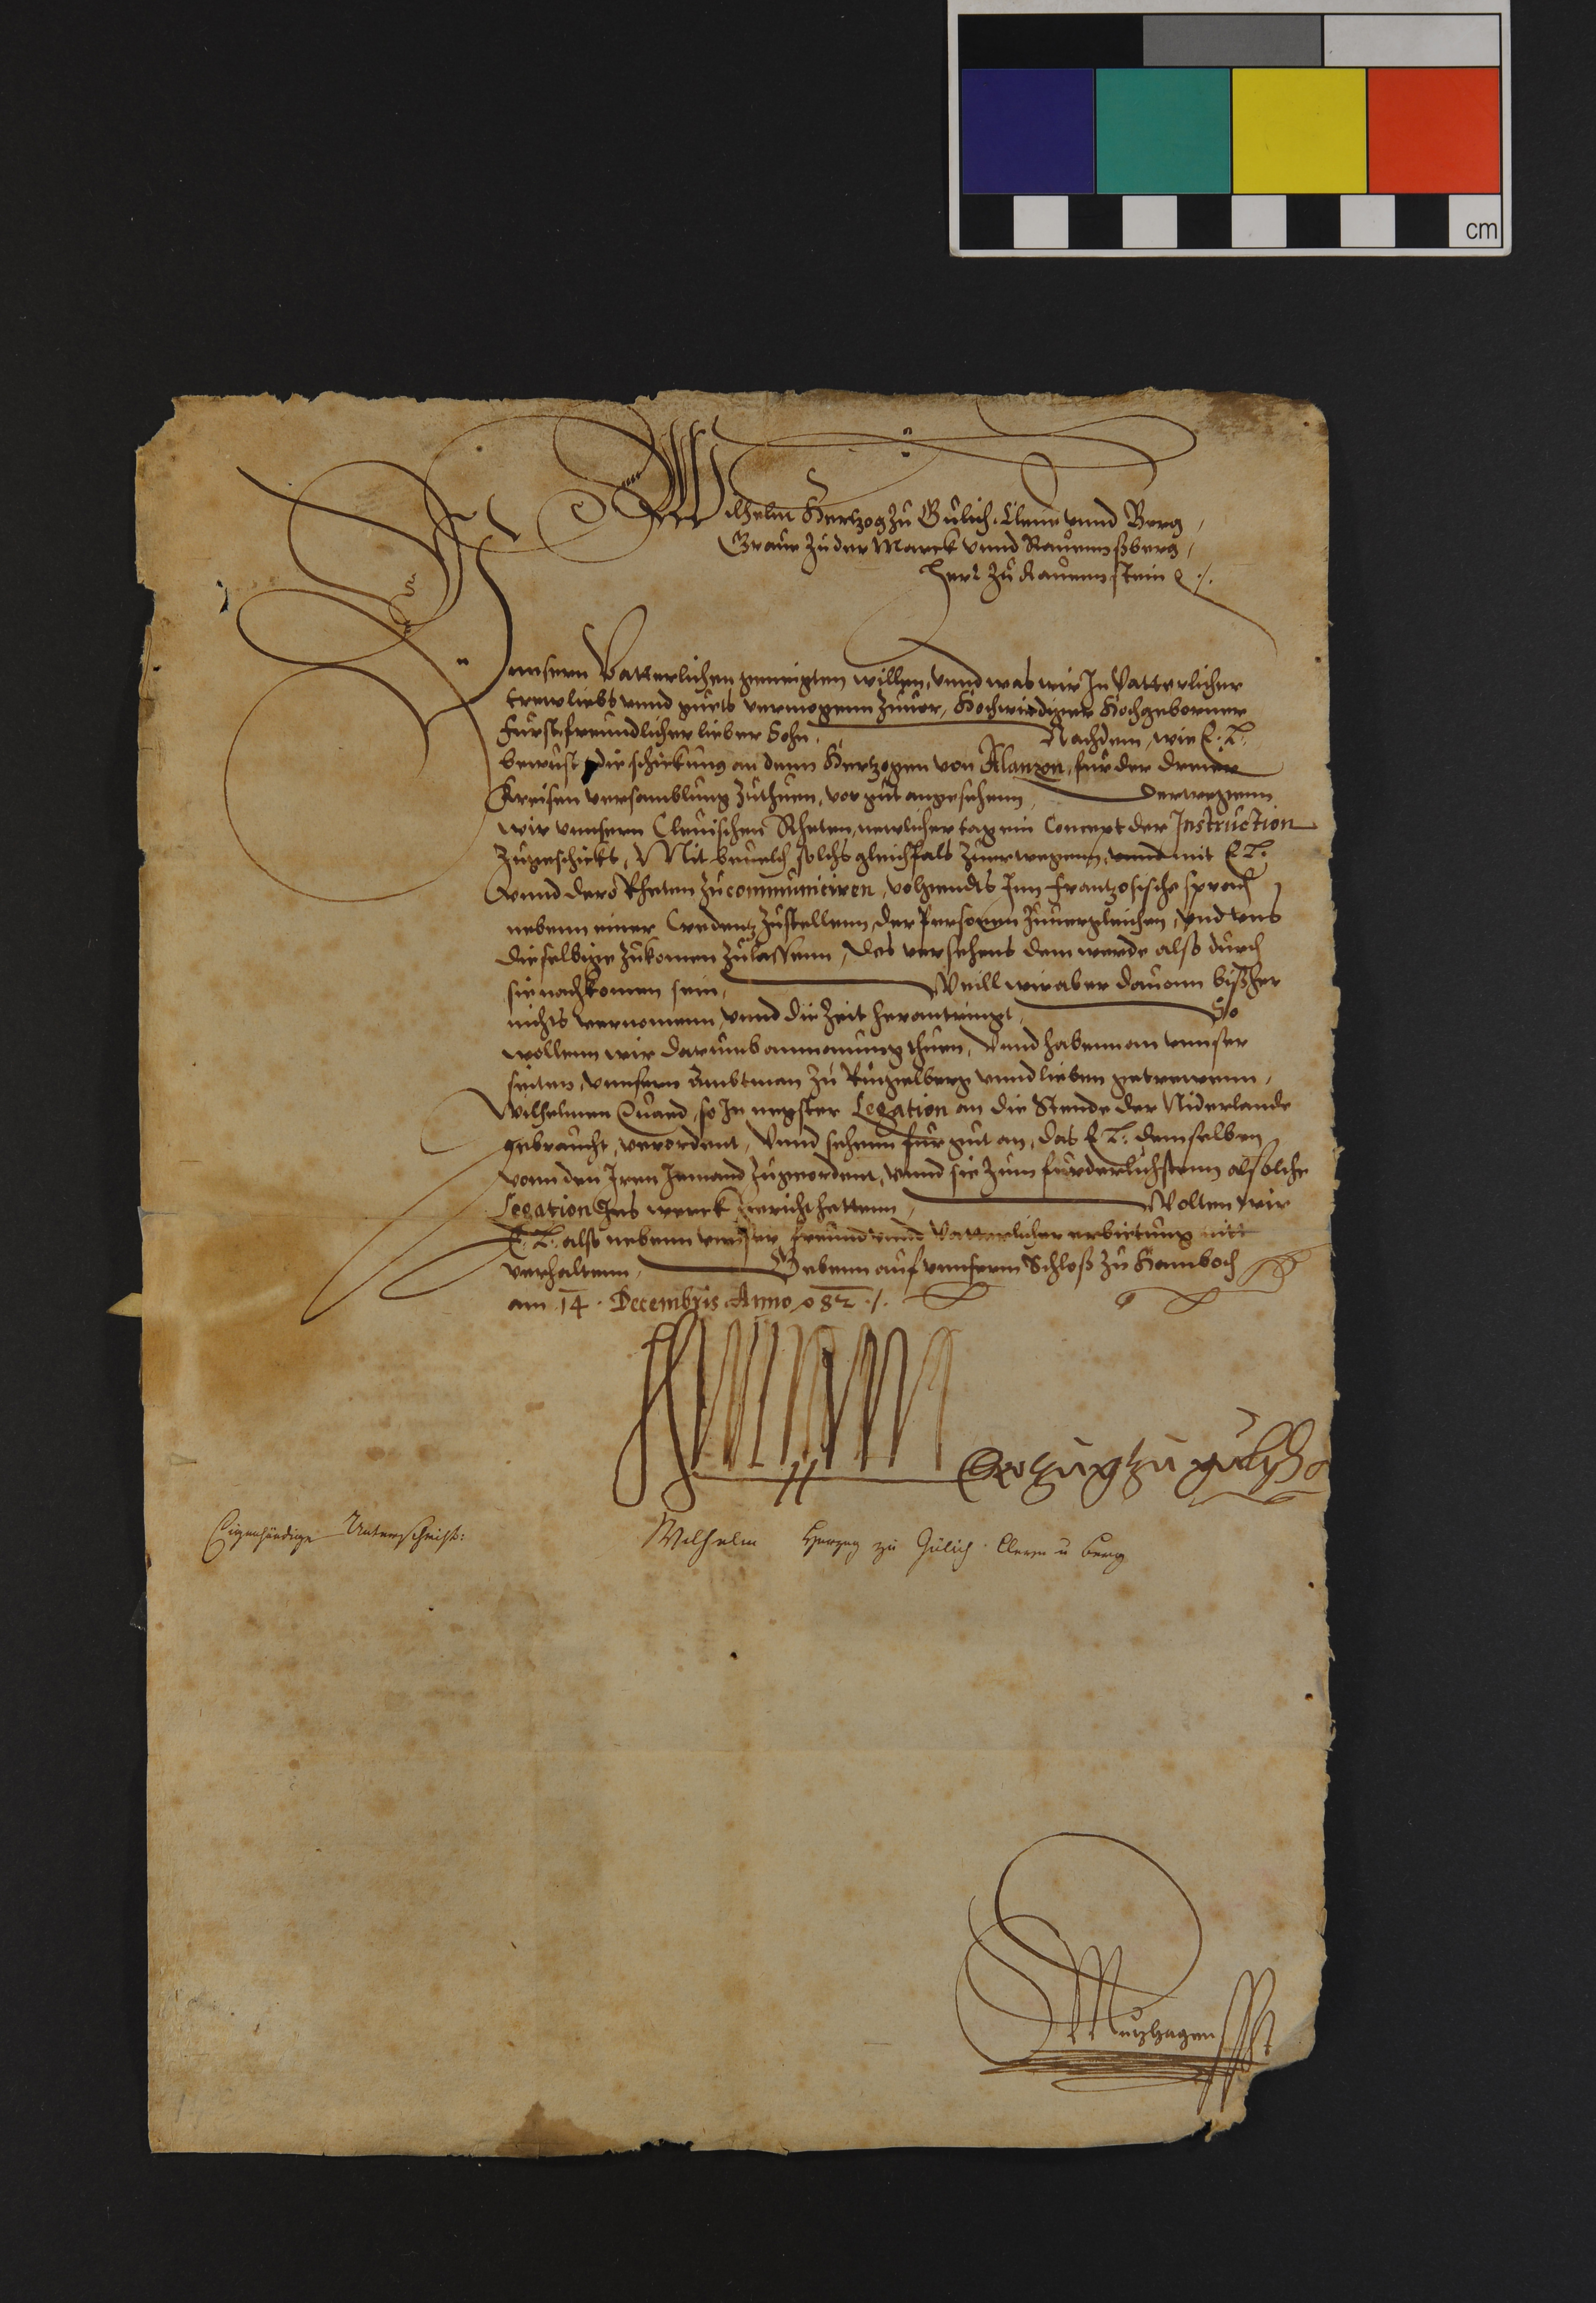 cm
Wilhelm Hertzog zu Gulich, Cleue vnnd Berg,
Graue zu der Marck vnnd Rauennßberg,
Herr zu Rauennstein ꝛc.
Vnnsern Vatterlichen geneigten willen, vnnd was wir In Vatterlicher
trew liebs vnnd guets vermogenn zuuor, Hochwirdiger Hochgeborner
Furst freundlicher lieber Sohn. Nachdem, wie E. L.
bewust die schickung an denn Hertzogen von Alanzon, fur der dreier
Kreisen versamblung zuthuen, vor gut angesehenn, Derwegenn
wir vnnsern Cleuischen Rheten, newlicher tag ein Concept der Instruction
zugeschickt, Mit beuelch solchs gleichfals zuerwegenn, vnnd mit E. L.
vnnd dero Rheten zu communiciren, volgendts Inn Frantzosische sprach
nebenn einer Credentz zustellenn, der Personen zuuergleichen, vnd vns
dieselbige zukomen zulassenn, Des versehens dem werde also durch
sie nachkomen sein, Weill wir aber dauonn bißher
nichts vernomenn, vnnd die Zeit herantringt, So
wollenn wir darumb anmanung thuen, Vnnd habenn an vnnser
seiten, vnnsern Ambtman zu Ringelberg vnnd lieben getrewenn,
Wilhelmen Quaed, so In negster Legation an die Stende der Niderlande
gebraucht, verordent, Vnnd sehenn fur gut an, das E. L. demselben
vonn den Iren Jemand zugeordent, vnnd sie zum furderlichstenn alsolche
Legation Ins werck gericht hettenn, Wolten wir
E. L. also nebenn vnnser freund vnnd Vatterlicher erbietung nitt
verhaltenn, Gebenn auf vnnserm Schloß zu Hamboch
am 14. Decembris Anno ꝛc 82 ./.
Wilhelm Hertzug zu Gulich
Eigenhändige Unterschrift: Wilhelm Herzog zu Gülich Cleve u Berg